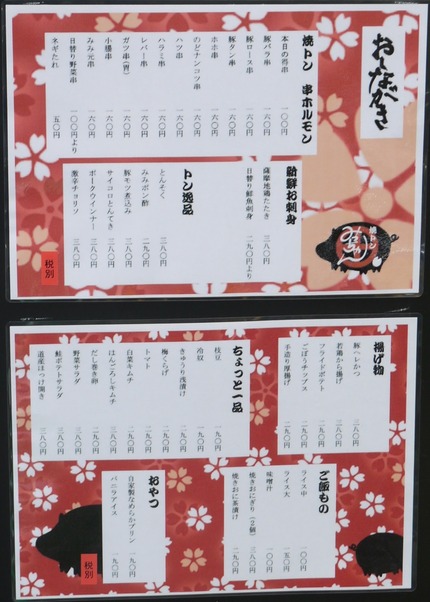 おしながき
焼トン 串ホルモン
本日の得串 一〇〇円
豚バラ串 一六〇円
豚ロース串 一六〇円
豚タン串 一六〇円
ホホ串 一六〇円
のどナンコツ串 一六〇円
ハツ串 一六〇円
ハラミ串 一六〇円
レバー串 一六〇円
ガツ串(胃) 一六〇円
小腸串 一六〇円
みみ元串 一六〇円
日替り野菜串 一〇〇円より
ネギたれ 五〇円
新鮮お刺身
薩摩地鶏たたき 三八〇円
日替り鮮魚刺身 二九〇円より
トン逸品
とんそく 三八〇円
みみポン酢 二九〇円
豚モツ煮込み 三八〇円
サイコロとんてき 三八〇円
ポークウインナー 三八〇円
激辛チョリソ 三八〇円
焼トン
税別
揚げ物
豚ヘレかつ 三八〇円
若鶏から揚げ 三八〇円
フライドポテト 二九〇円
ごぼうチップス 二九〇円
手造り厚揚げ 二九〇円
ちょっと一品
枝豆 一九〇円
冷奴 一九〇円
きゅうり浅漬け 二九〇円
梅くらげ 二九〇円
トマト 二九〇円
白菜キムチ 二九〇円
はんごろしキムチ 三八〇円
だし巻き卵 二九〇円
野菜サラダ 三八〇円
鮭ポテトサラダ 三八〇円
道産ほっけ開き 三八〇円
ご飯もの
ライス中 一〇〇円
ライス大 一五〇円
味噌汁 一〇〇円
焼きおにぎり(2個) 三八〇円
焼きおに茶漬け 二九〇円
おやつ
自家製なめらかプリン 一九〇円
バニラアイス 一九〇円
税別